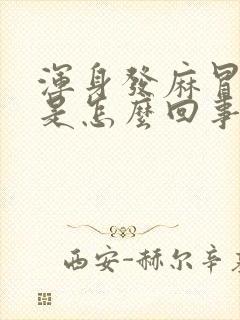 渾身發麻冒
是怎麼回事
西安-赫尔辛